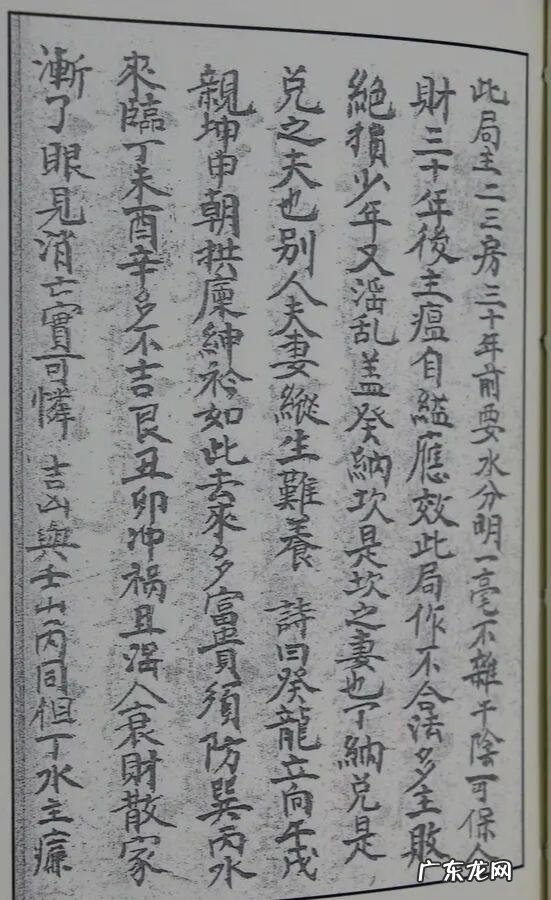 此局主二三房三十年前要水分明一毫不雜干陰可保人
財三十年後主瘟自縊應效此局作不合法多主敗
絕損少年又淫乱盖癸納坎是坎之妻也丁納兑是
兑之夫也别人夫妻縱生難養 詩曰癸龍立向午戌
親坤申朝拱廉紳衿如此去來多富貴須防巽丙水
來臨丁未酉辛多不吉艮丑卯冲祸且淫人衰財散家
漸了眼見消亡實可憐 吉凶與壬山丙同但丁水主癆
广东龙网